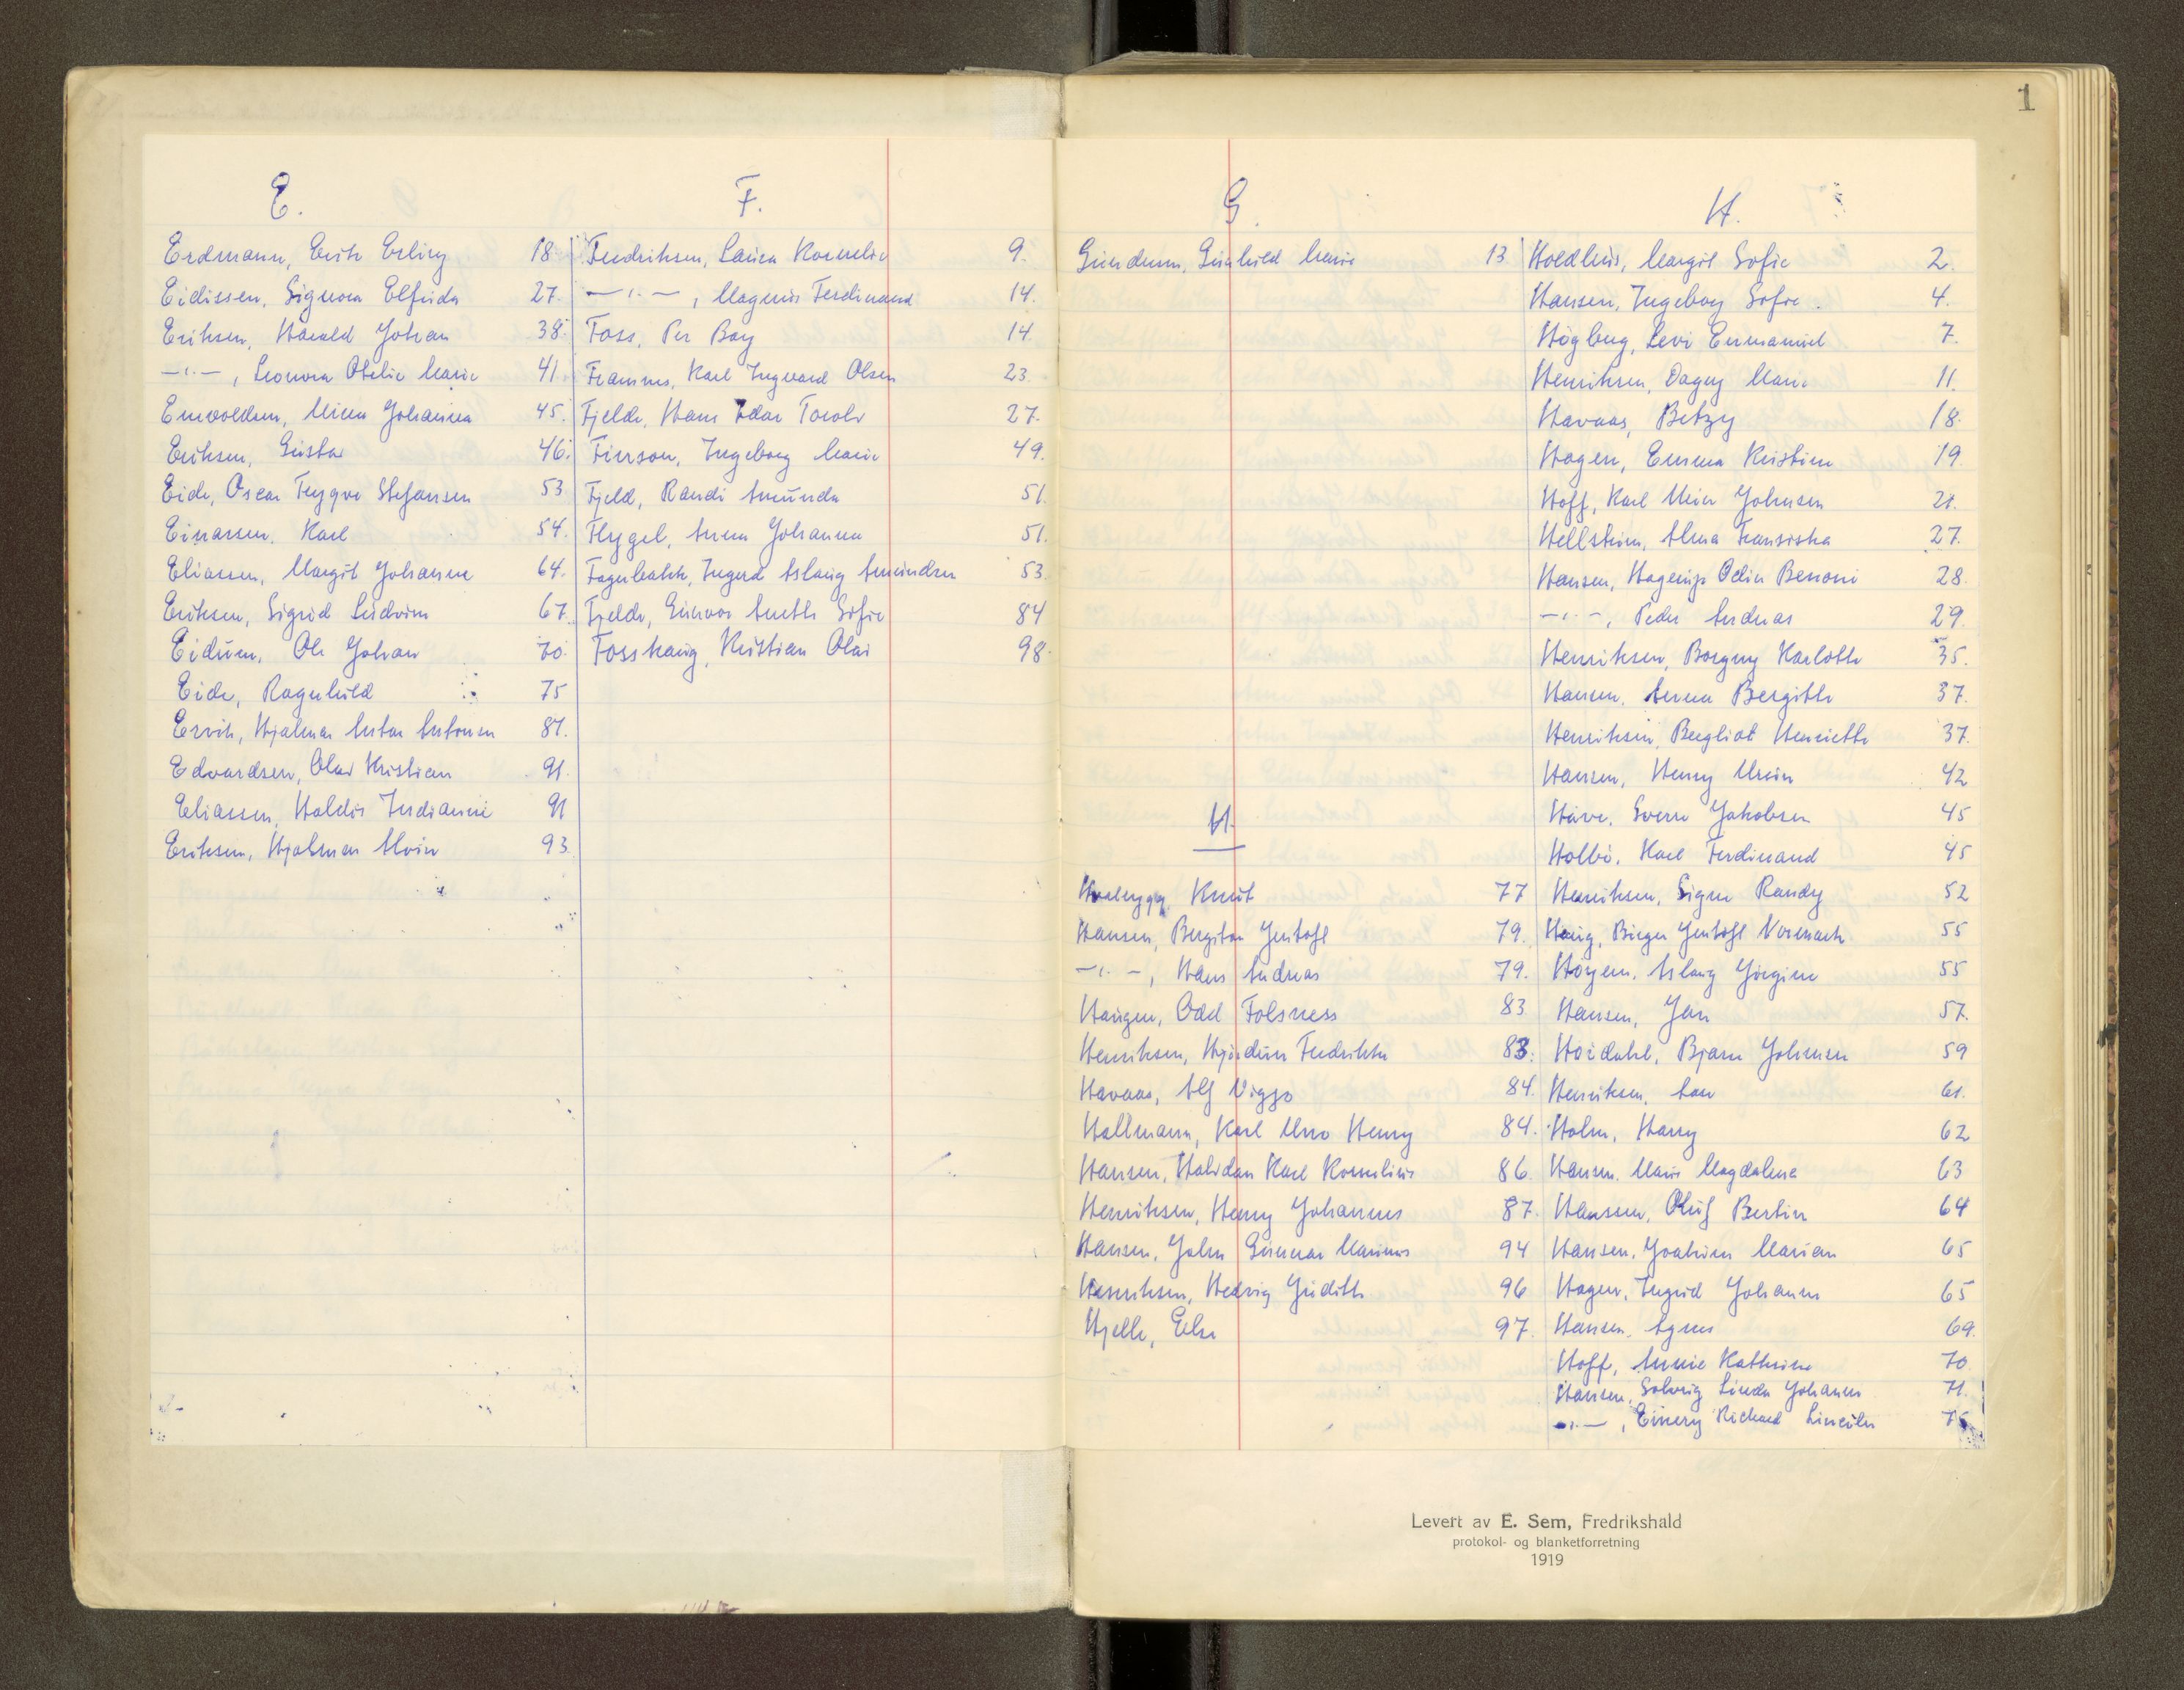 1
E.
Erdmann, Erik Erling 18
Eidissen, Signora Elfrida 27.
Eriksen, Harald Johan 38.
—"—, Leonora Otelie Marie 41.
Enevoldsen, Minna Johanna 45.
Eriksen, Gustav 46.
Eide, Oscar Trygve Stefansen 53
Einarsen, Karl 54.
Eliassen, Margit Johanne 64.
Eriksen, Sigrid Ludvine 67.
Eidum, Ole Johan 70.
Eide, Ragnhild 75
Ervik, Hjalmar Anton Antonsen 81.
Edvardsen, Olav Kristian 91.
Eliassen, Haldis Jurdianne 91
Eriksen, Hjalmar Alvin 93.
F.
Fredriksen, Laura Kornelie 9.
—"—, Magnus Ferdinand 14.
Foss, Per Boy 14.
Framnes, Karl Ingvard Olsen 23.
Fjelde, Hans Edar Torolv 27.
Finsson, Ingeborg Marie 49.
Fjeld, Randi Amunda 51.
Flygel, Anna Johanna 51.
Fagerbakk, Ingerd Aslaug Amundsen 53.
Fjelde, Gunvor Anette Sofie 84
Fosshaug, Kristian Olai 98.
G.
Gundersen, Gunhild Marie 13
H.
Knut 77
Hansen, Bergiton Gustafl 79.
—"—, Hans Andreas 79.
Haugen, Odd Folsness 83
Henriksen, Hjördun Fredrikke 83.
Havaas, Alf Viggo 84.
Hallmann, Karl Uno Henry 84.
Hansen, Halvdan Karl Kornelius 86
Henriksen, Henry Johannes 87.
Hansen, John Gunnar Marinus 94
Henriksen, Hedvig Judith 96
Hjelle, Else 97.
H.
Hoedlius, Margit Sofie 2.
Hansen, Ingeborg Sofie. 4.
Högberg, Levi Emmanuel 7.
Henriksen, Dagny Marie 11.
Havaas, Betzy 18.
Hagen, Emma Kristine 19
Hoff, Karl Meier Johnsen 21.
Hellström, Alma Fransiska 27.
Hansen, Hagerup Odin Benoni 28.
—"—, Peder Andreas 29.
Henriksen, Borgny Karlotte 35.
Hansen, Anna Bergitte 37.
Henriksen, Bergliot Henriette 37.
Hansen, Henry Urein 42
Have, Sverre Jakobsen 45
Holbö, Karl Ferdinand 45
Henriksen, Signe Randy 52
Haug, Birger Gustafl Normark 55
Höyem, Aslaug Jörgine 55
Hansen, Jan 57.
Hoidahl, Bjarne Johnsen 59
Henriksen, Aase 61.
Holm, Harry 62
Hansen, Marie Magdalena 63
Hanssen, Oluf Bertin 64
Hansen, Joakim Marian 65
Hagen, Ingrid Johanne 65
Hansen, Agnes 69.
Hoff, Annie Kathrine 70
Hansen, Solveig Linda Johanne 71.
—"—, Einery Richard Lincoln 75
Levert av E. Sem, Fredrikshald
protokol- og blanketforretning
1919